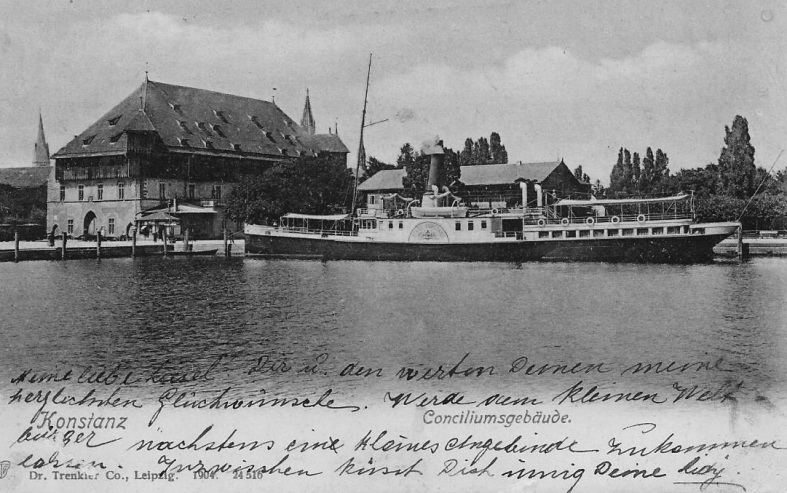 Meine liebe Dir u. den werten Deinen meine
herzlichsten Glückwünsche. Werde dem kleinen Welt
Konstanz
Conciliumsgebäude.
bürger nächstens eine kleines Angebinde zukommen
lassen. Inzwischen küsst Dich innig Deine
Dr. Trenkler Co., Leipzig. 1904. 24516